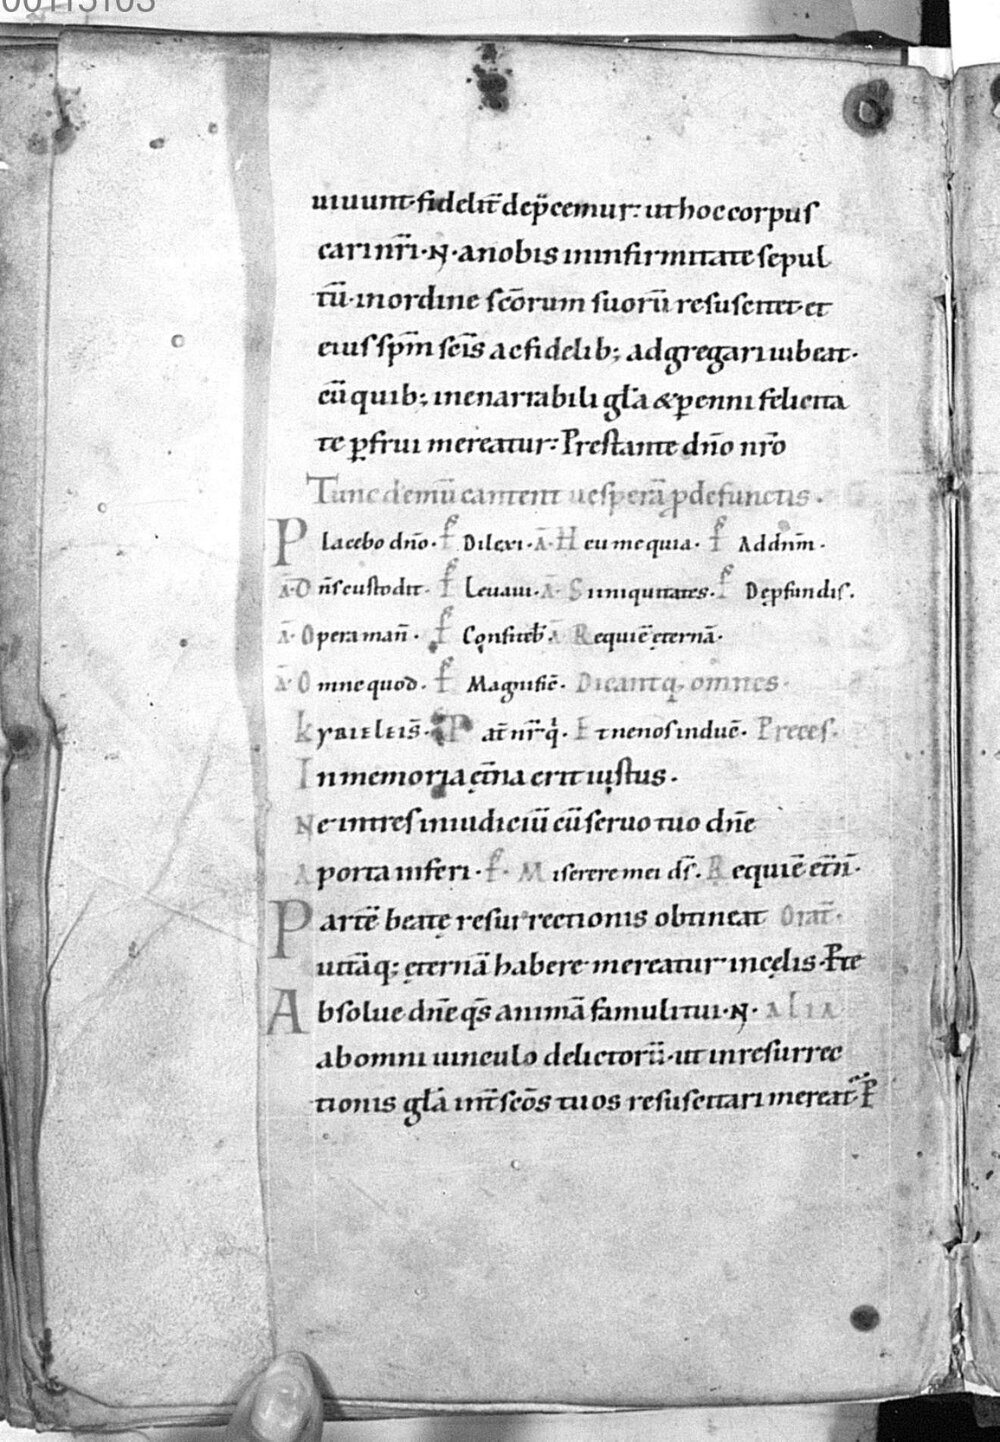 uiuunt. fidelit̄ dep̄cemur: ut hoc corpus
cari nr̄i. N. a nobis in infirmitate sepul
tū. in ordine sc̄orum suorū resuscitet. et
eius sp̄m sc̄is ac fidelib; adgregari iubeat.
cū quib; inenarrabili gl̄a & ꝑenni felicita
te ꝑfrui mereatur: Prestante dn̄o nr̄o
Tunc demū cantent uesperā ꝓ defunctis.
Placebo dn̄o. ps̄ Dilexi. A̅. Heu me quia. ps̄ Ad dn̄m.
A̅. Dn̄s custodit. ps̄ Leuaui. A̅. Si iniquitates. ps̄ De ꝓfundis.
A̅. Opera man̄. ps̄ Confiteb̄. A̅. Requiē ęternā.
A̅. Omne quod. ps̄ Magnific̄. Dicantq; omnes.
KYRIELEIS̄. Pat̄ nr̄. q̇. Et ne nos induc̄. Preces.
In memoria ęt̄na erit iustus.
Ne intres in iudiciū cū seruo tuo dn̄e
A porta inferi. ps̄. Miserere mei ds̄. Requiē et̄n̄.
Partē beatę resurrectionis obtineat Orat̄.
uitāq; ęternā habere mereatur in cęlis. P̄te
Absolue dn̄e qs̄ animā famuli tui. N. ALIA
ab omni uinculo delictorū. ut in resurrec
tionis gl̄a int̄ sc̄os tuos resuscitari mereat̄. P̄